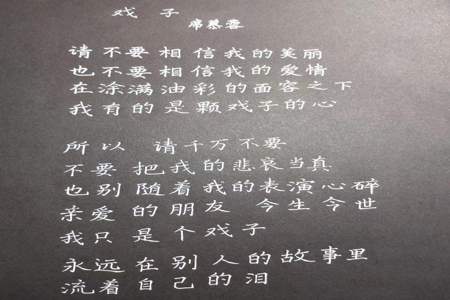 戏子
席慕蓉
请不要相信我的美丽
也不要相信我的爱情
在涂满油彩的面容之下
我有的是颗戏子的心
所以 请千万不要
不要把我的悲哀当真
也别随着我的表演心碎
亲爱的朋友 今生今世
我只是个戏子
永远在别人的故事里
流着自己的泪